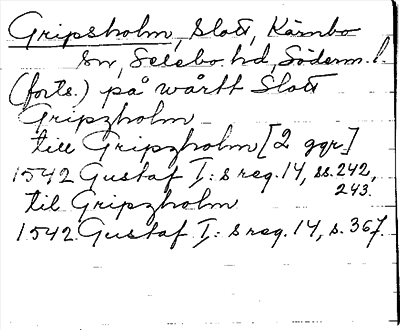 Gripsholm, Slott, Kärnbo
sn, Selebo hd, Söderm. l.
(forts.) på wårtt Slott
Gripzholm
till Gripzholm [2 ggr]
1542 Gustaf I:s reg. 14, ss. 242,
243.
til Gripzholm
1542 Gustaf I:s reg. 14, s. 367.